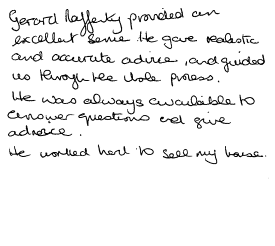 Gerard Rafferty provided an
excellent service He gave realistic
and accurate advice, and guided
us through the whole process.
He was always available to
answer questions and give
advice.
He worked hard to sell my house.